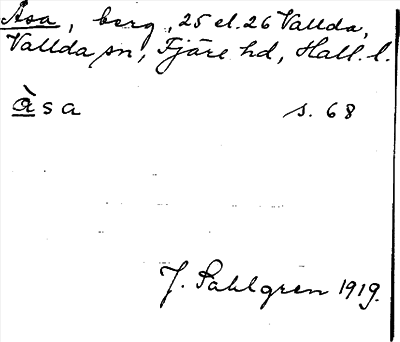 Åsa, berg, 25 el. 26 Vallda,
Vallda sn, Fjäre hd, Hall. l.
à s a s. 68
J. Sahlgren 1919.